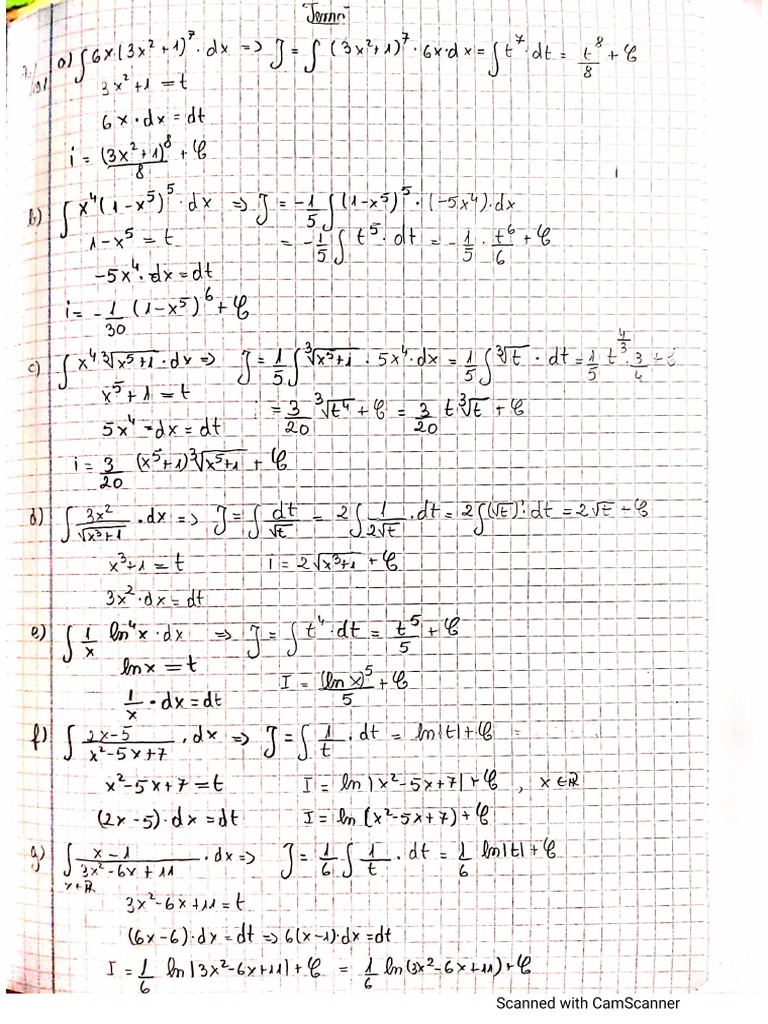 a) ∫6x(3x²+1)⁷·dx => J = ∫(3x²+1)⁷·6x·dx = ∫t⁷·dt = t⁸/8 + C
3x²+1 = t
6x·dx = dt
i = (3x²+1)⁸/8 + C
b) ∫x⁴(1-x⁵)⁵·dx => J = -1/5 ∫(1-x⁵)⁵·(-5x⁴)·dx
1-x⁵ = t = -1/5 ∫t⁵·dt = -1/5 · t⁶/6 + C
-5x⁴·dx = dt
i = -1/30 (1-x⁵)⁶ + C
c) ∫x⁴∛(x⁵+1)·dx => J = 1/5 ∫∛(x⁵+1)·5x⁴·dx = 1/5 ∫∛t·dt = 1/5 t^(4/3)·3/4 + C
x⁵+1 = t i = 3/20 ∛(t⁴) + C = 3/20 t∛t + C
5x⁴·dx = dt
i = 3/20 (x⁵+1)∛(x⁵+1) + C
d) ∫3x²/√(x³+1)·dx => J = ∫dt/√t = 2∫1/(2√t)·dt = 2∫(√t)'·dt = 2√t + C
x³+1 = t i = 2√(x³+1) + C
3x²·dx = dt
e) ∫1/x ln⁴x·dx => J = ∫t⁴·dt = t⁵/5 + C
lnx = t I = (lnx)⁵/5 + C
1/x·dx = dt
f) ∫(2x-5)/(x²-5x+7)·dx => J = ∫1/t·dt = ln|t| + C
x²-5x+7 = t I = ln|x²-5x+7| + C , x∈R
(2x-5)·dx = dt I = ln(x²-5x+7) + C
g) ∫(x-1)/(3x²-6x+11)·dx => J = 1/6 ∫1/t·dt = 1/6 ln|t| + C
x∈R
3x²-6x+11 = t
(6x-6)·dx = dt => 6(x-1)·dx = dt
I = 1/6 ln|3x²-6x+11| + C = 1/6 ln(3x²-6x+11) + C
Scanned with CamScanner